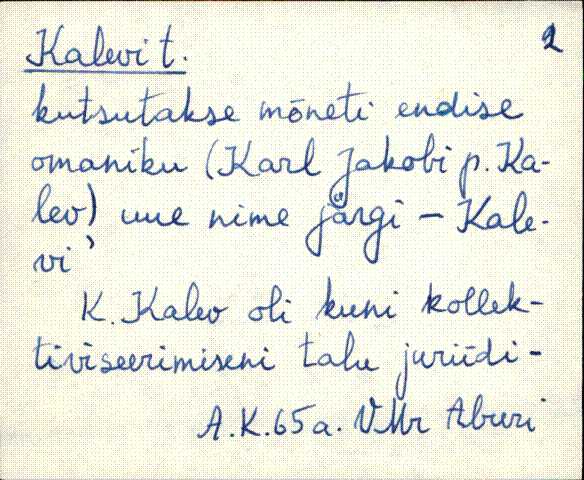 2
Kalevi t.
kutsutakse mõneti endise
omaniku (Karl Jakobi p. Ka-
lev) uue nime järgi - Kale-
vi'
K. Kalev oli kuni kollek-
tiviseerimiseni talu juriidi-
A.K. 65 a. VMr Aburi